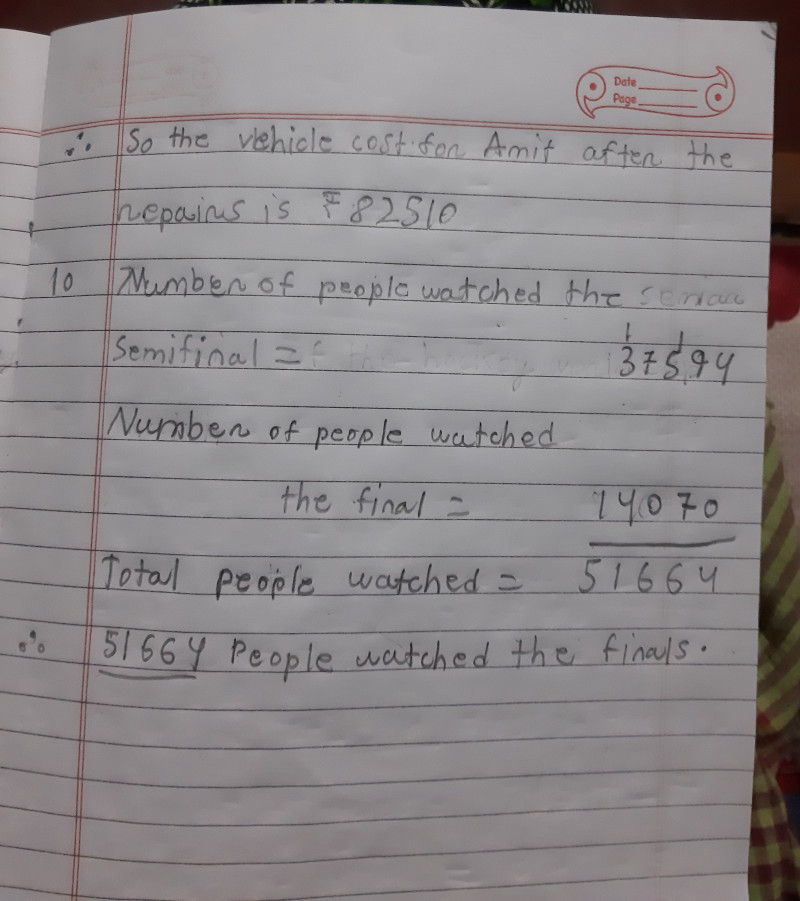 Date
Page
∴ So the vehicle cost for Amit after the
repairs is ₹82510
10 Number of people watched the
Semifinal = 37594
Number of people watched
the final = 14070
Total people watched = 51664
∴ 51664 People watched the finals.